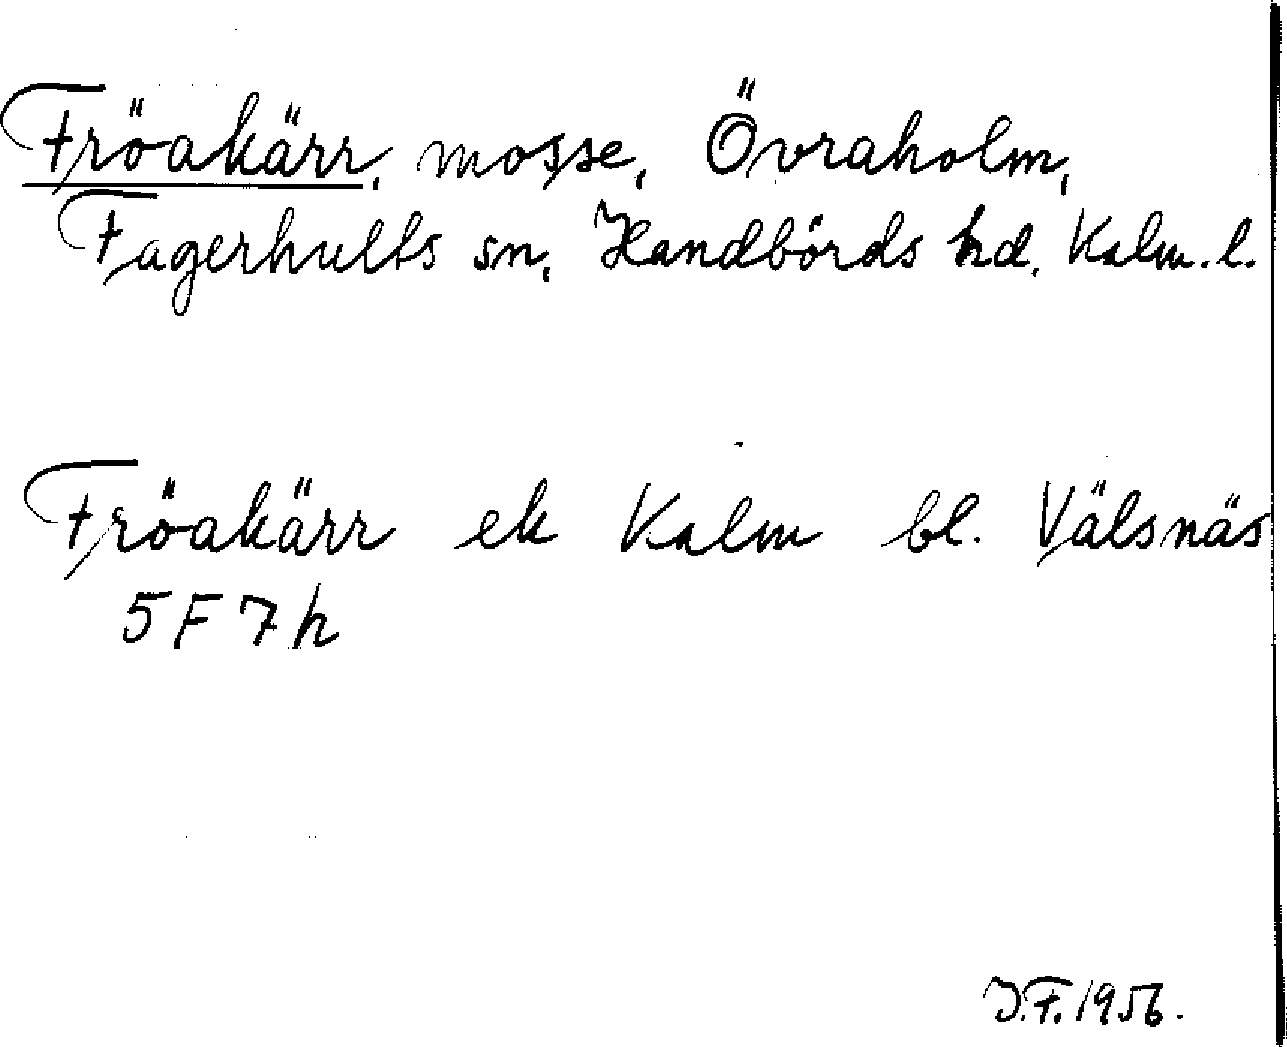 Fröakärr, mosse, Övraholm,
Fagerhults sn, Handbörds hd, Kalm. l.
Fröakärr ek Kalm bl. Välsnäs
5F7h
J.F. 1956.